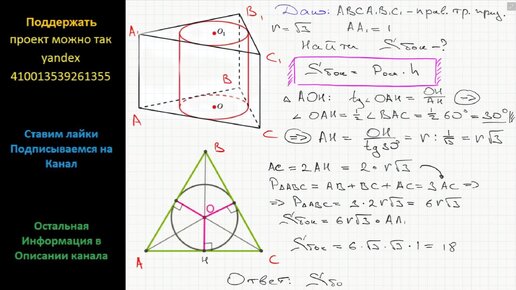 Поддержать
проект можно так
yandex
410013539261355
Ставим лайки
Подписываемся на
Канал
Остальная
Информация в
Описании канала
B₁
A₁
O₁
C₁
B
O
A
C
B
O
A
H
C
Дано: ABCA₁B₁C₁ - прав. тр. приз.
r = √3 AA₁ = 1
Найти Sбок - ?
Sбок = Pосн · h
△ AOH: tg∠OAH = OH/AH ⇒
∠OAH = ½∠BAC = ½ 60° = 30°
⇒ AH = OH/tg30° = r : 1/√3 = r√3
AC = 2AH = 2 · r√3
P△ABC = AB + BC + AC = 3AC ⇒
⇒ P△ABC = 3 · 2r√3 = 6r√3
Sбок = 6r√3 · AA₁
Sбок = 6 · √3 · √3 · 1 = 18
Ответ: Sбо